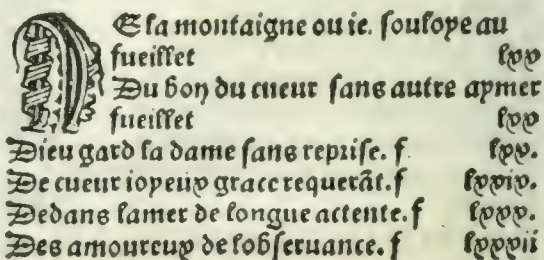 DE la montaigne ou ie. ſouloye au
fueillet lxx
Du bon du cueur ſans autre aymer
fueillet lxx
Dieu gard la dame ſans repriſe. f lxx.
De cueur ioyeux grace requerãt. f lxxix.
Dedans lamer de longue actente. f lxxx.
Des amoureux de lobſeruance. f lxxxii